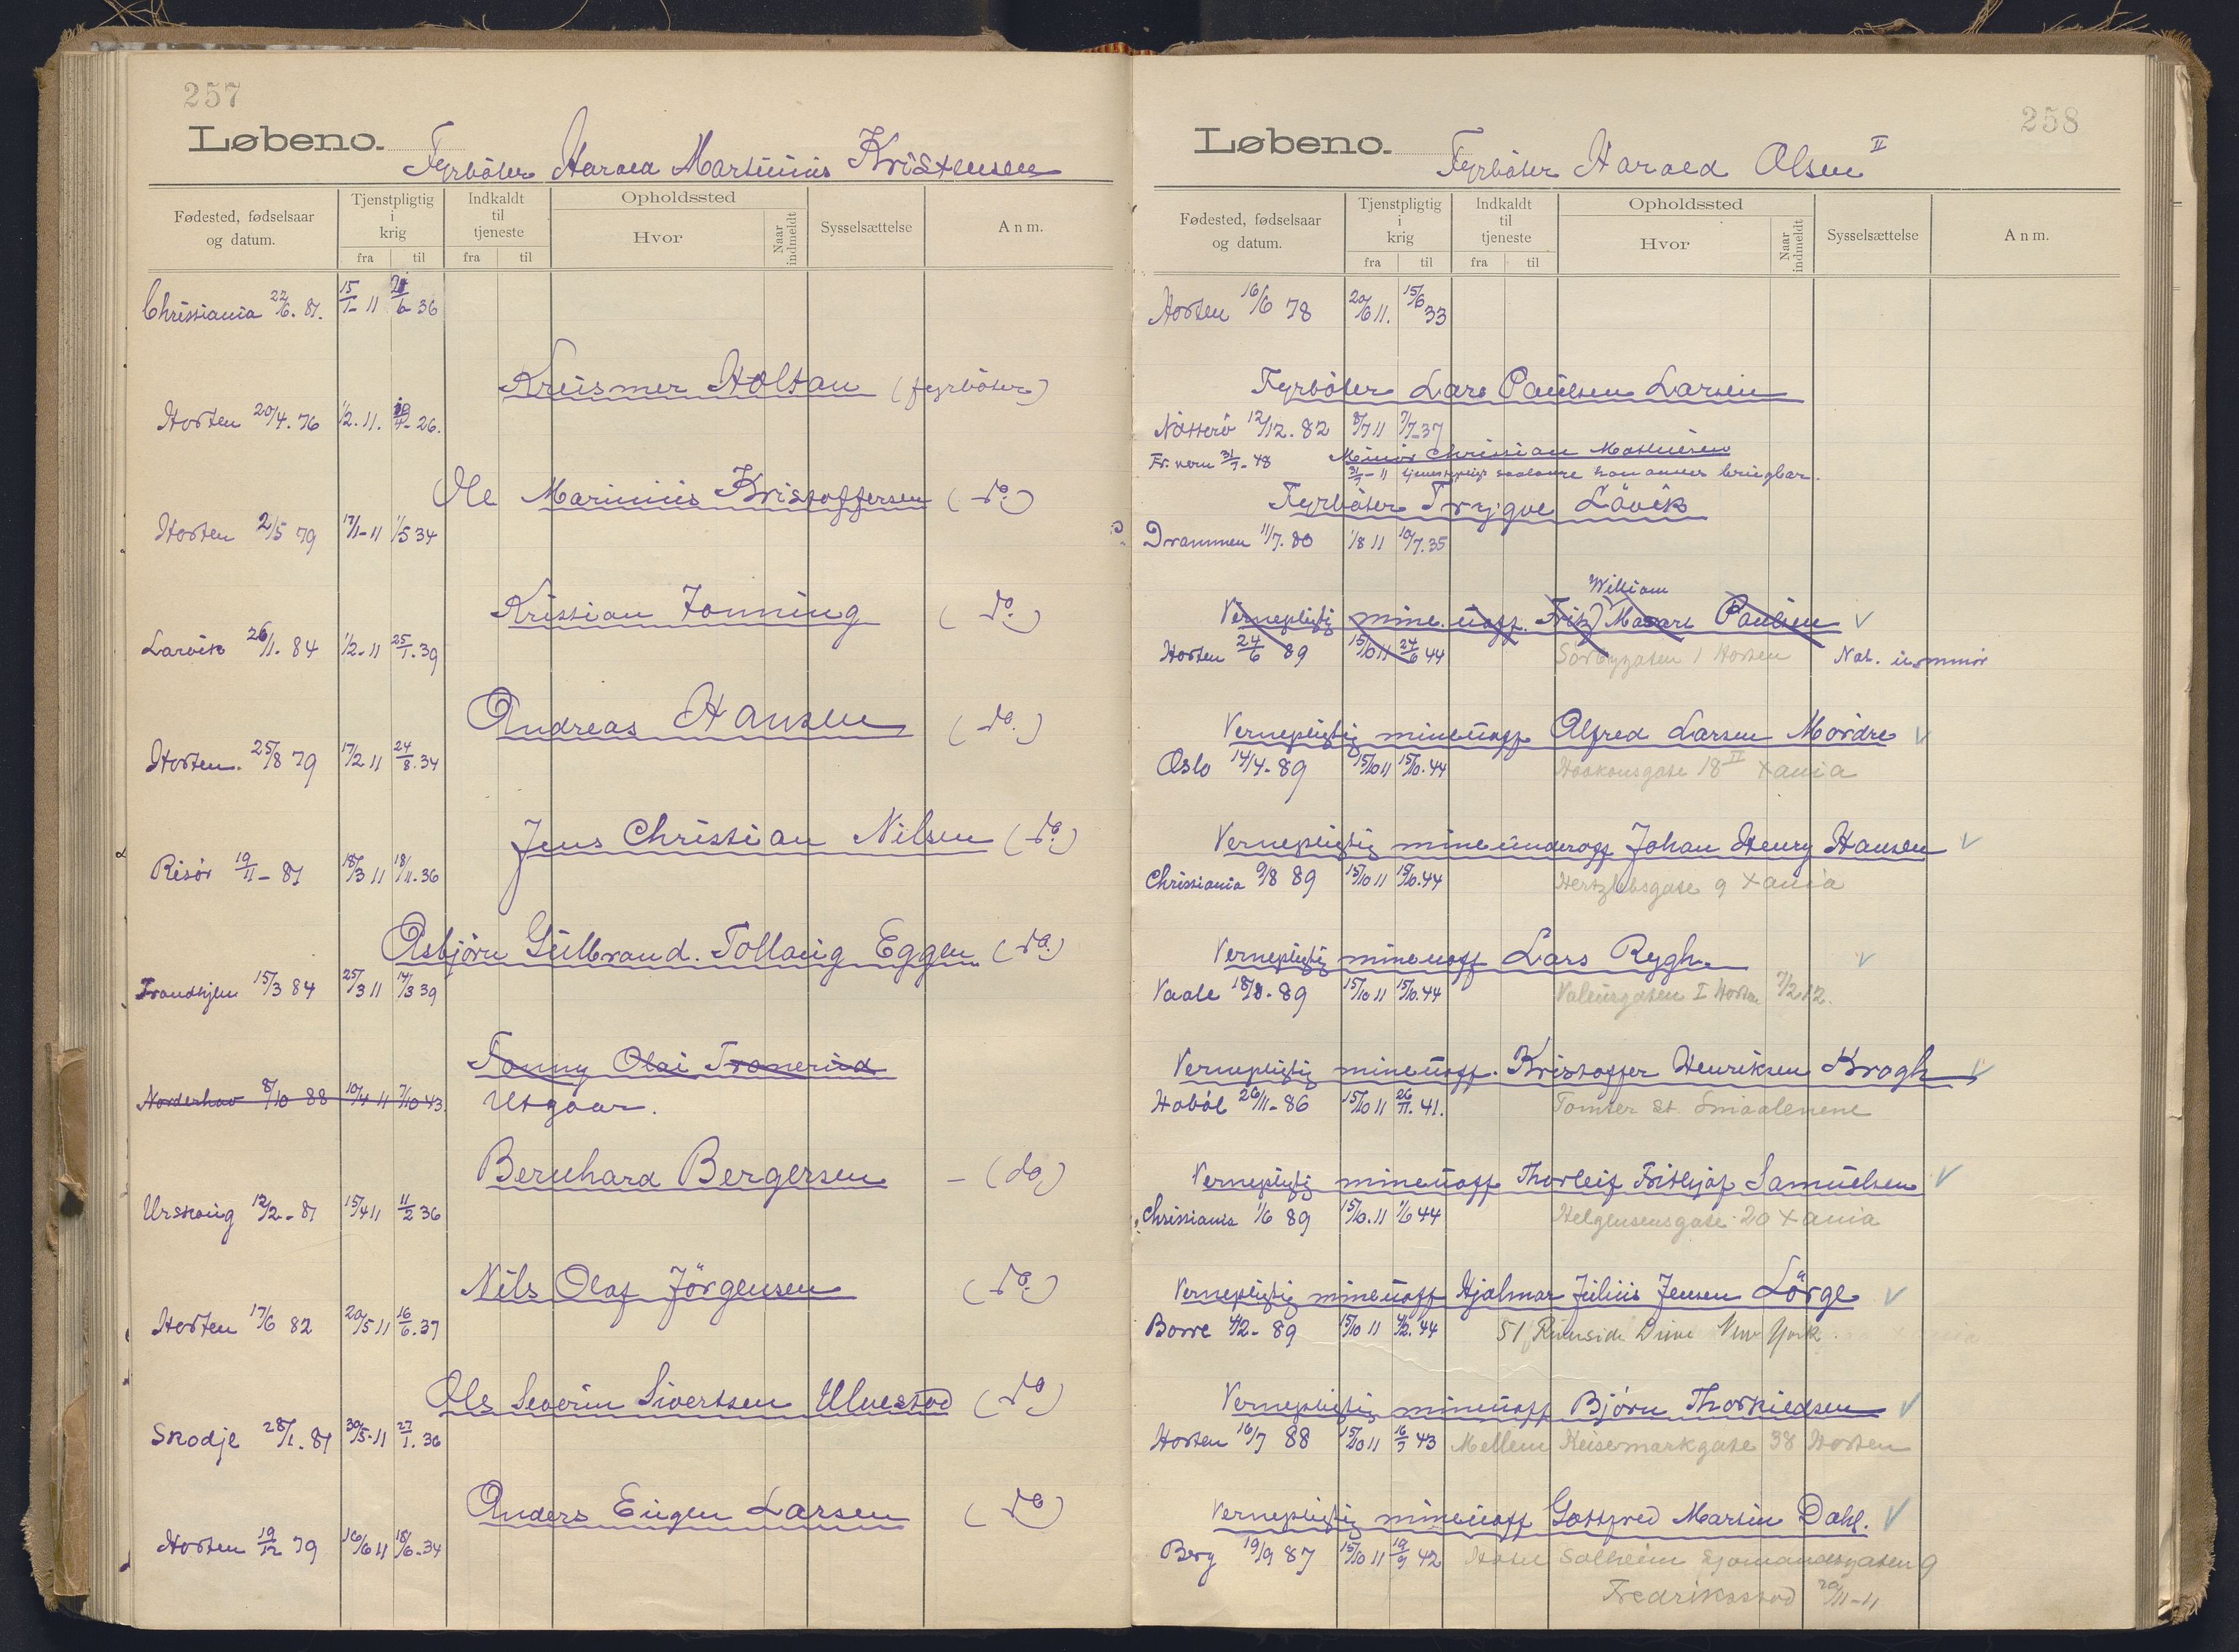 257
Løbeno.
Fyrbøter Harald Martinius Kristensen
Fødested, fødselsaar og datum.
Tjenstpligtig i krig
fra til
Indkaldt til tjeneste
fra til
Opholdssted
Hvor
Naar indmeldt
Sysselsættelse
Anm.
Christiania 22/6. 81. 15/1- 11 21/6 36
Kreismer Holtan (fyrbøter)
Horten 20/4. 76 1/2. 11. 19/4- 26.
Ole Marinius Kristoffersen (do.)
Horten 2/5 79 17/1- 11 1/5 34
Kristian Tonning (do.)
Larvik 26/1. 84 1/2- 11 25/1. 39
Andreas Hansen (do.)
Horten. 25/8 79 17/2 11 24/8. 34
Jens Christian Nilsen (do.)
Risör 19/11- 81 18/3 11 18/11. 36
Asbjörn Gulbrand. Tollaug Eggen (do.)
Trondhjem 15/3 84 25/3 11 14/3 39
Tonny Olai Tronerud
Norderhov 8/10 88 10/4 11 7/10 43. Utgaar.
Bernhard Bergersen - (do)
Urskoug 12/2- 81 15/4 11 11/2 36
Nils Olaf Jörgensen (do.)
Horten 17/6 82 20/5 11 16/6. 37
Ole Severin Sivertsen Ulvestad (do)
Skodje 28/1. 81 30/5- 11 27/1. 36
Anders Eugen Larsen (do)
Horten 19/12 79 16/6 11 18/6. 34
258
Løbeno.
Fyrbøter Harald Olsen II
Fødested, fødselsaar og datum.
Tjenstpligtig i krig
fra til
Indkaldt til tjeneste
fra til
Opholdssted
Hvor
Naar indmeldt
Sysselsættelse
Anm.
Horten 16/6 78 20/6 11. 15/6 33
Fyrböter Lars Paulsen Larsen
Nötterö 12/12. 82 8/7 11 7/7- 37
Minör Christian Mathiesen
Fr. vern 31/7- 48 31/7- 11 tjenstpligt saalænge han anses brugbar.
Fyrböter Trygve Lövik
Drammen 11/7. 80 1/8 11 10/7. 35
William
Vernepligtig mine. uoff. Fritz Paulsen
Horten 24/6 89 15/10 11 24/6 44 1 Horten Nat. u.minör
Vernepligtig mineuoff Alfred Larsen Mördre
Oslo 14/4- 89 15/10 11 15/10. 44 Haakonsgate 18 II Xania
Vernepligtig mineunderoff Johan Henry Hansen
Christiania 9/8 89 15/10 11 15/10. 44 Hertzlebsgate 9 Xania
Vernepligtig mineuoff Lars Rygh.
Vaale 18/8. 89 15/10 11 15/10. 44 I Horten 7/2 12.
Vernepligtig mineuoff. Kristoffer Henriksen Krogh
Haböl 26/11- 86 15/10 11 26/11. 41. Tomter st. Smaalenene
Vernepligtig mineuoff Thorleif Frithjof Samuelsen
Christiania 1/6 89 15/10. 11 1/6 44 Helgensensgate 20 Xania
Vernepligtig mineuoff Hjalmar Julius Jensen Lörge
Borre 4/2- 89 15/10 11 4/2. 44 51 Riverside Drive New York.
Vernepligtig mineuoff Björn Thorkildsen
Horten 16/7 88 15/10 11 16/7 43 Mellem Keisemarkgate 38 Horten
Vernepligtig mineuoff Gottfred Martin Dahl.
Berg 19/9 87 15/10 11 19/9 42 Hotel Solheim Sjomandsgaten 9
Fredriksstad 20/11- 11